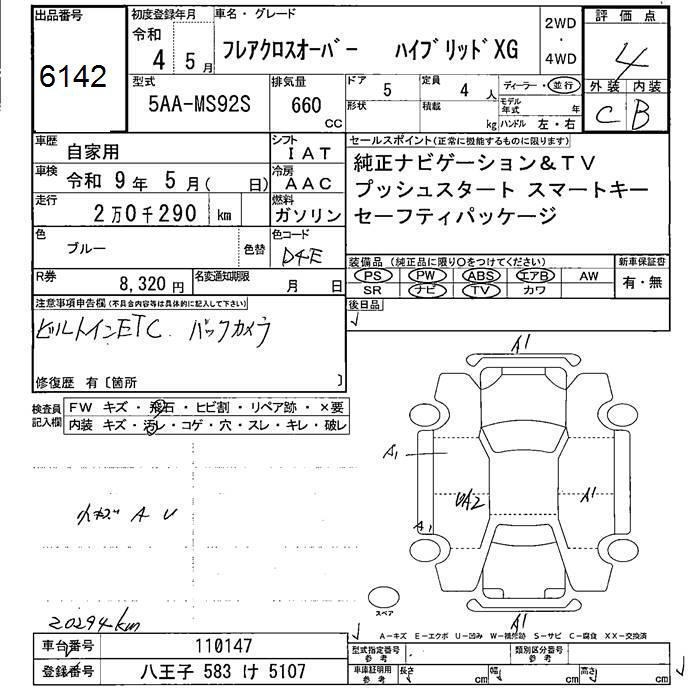 出品番号 初度登録年月 車名・グレード 2WD・4WD 評価点
6142 令和 4 5月 フレアクロスオーバー ハイブリッドXG 4
型式 排気量 ドア 5 定員 4人 ディーラー・並行 外装 内装
5AA-MS92S 660 cc 形状 積載 kg モデル年式 年 C B
ハンドル 左・右
車歴 自家用 シフト IAT セールスポイント(正常に機能するものに限ります)
車検 令和 9年 5月( 日) 冷房 AAC 純正ナビゲーション&TV
走行 2万0千290 km 燃料 ガソリン プッシュスタート スマートキー
セーフティパッケージ
色 ブルー 色替 色コード D4E
装備品(純正品に限り○をつけてください) 新車保証書
R券 8,320円 名変通知期限 月 日 PS PW ABS エアB AW 有・無
SR ナビ TV カワ
注意事項申告欄(不具合内容等は具体的に記入して下さい) 後日品
ビルトインETC. バックカメラ
修復歴 有〔箇所 〕
検査員記入欄 FW キズ・飛石・ヒビ割・リペア跡・×要
内装 キズ・汚レ・コゲ・穴・スレ・キレ・破レ
A1
A1
UA2 A1
小キズ A U
A1
スペア
20294km
A1
A-キズ E-エクボ U-凹み W-補修跡 S-サビ C-腐食 XX-交換済
車台番号 110147 型式指定番号 参考 類別区分番号 参考
登録番号 八王子 583 け 5107 車庫証明用 参考 長さ cm 幅 cm 高さ cm